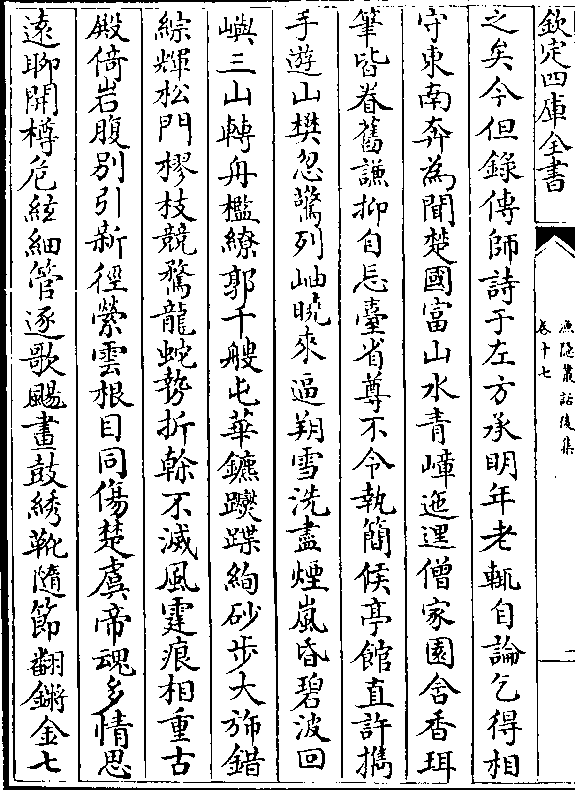 欽定四庫全書
漁隱叢話後集
卷十七
二
之矣今但錄傳師詩于左方承明年老輒自論乞得相
守東南奔為聞楚國富山水青嶂迤邐僧家園含香珥
筆皆眷舊謙抑自忘臺省尊不令執簡候亭館直許擕
手遊山樊忽驚列岫曉來逼朔雪洗盡煙嵐昏碧波回
嶼三山轉丹檻繚郭千艘屯華鑣躞蹀絢砂步大斾錯
綜輝松門樛枝競騖龍蛇勢折榦不滅風霆痕相重古
殿倚岩腹別引新徑縈雲根目同傷楚虞帝魂多情思
遠聊開樽危絃細管逐歌颺畫鼓繡靴隨節翻鏘金七